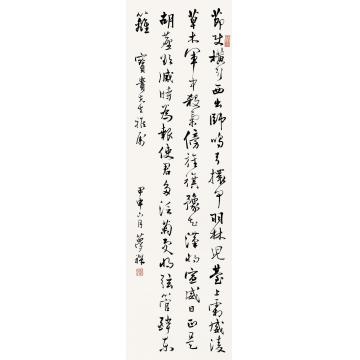 節使橫行西出師鳴弓擐甲羽林兒臺上霜威凌
草木軍中殺氣傍旌旗豫知漢將宣威日正是
胡塵欲滅時為報使君多泛菊更將弦管醉東
籬 寶貴先生雅屬 甲申六月